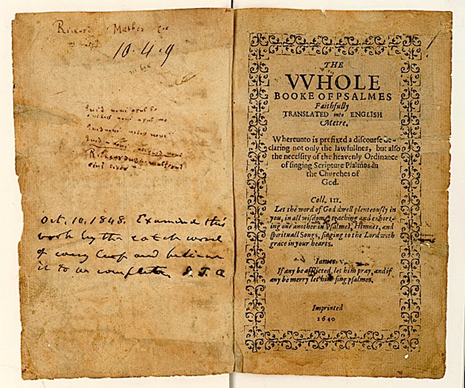 Richard Mather
10.4.9
Oct. 10, 1848. Examined this
work by the catch word
of every page and believe
it to be complete
THE
VVHOLE
BOOKE OF PSALMES
Faithfully
TRANSLATED into ENGLISH
Metre.
Whereunto is prefixed a discourse de-
claring not only the lawfullnes, but also
the necessity of the heavenly Ordinance
of singing Scripture Psalmes in
the Churches of
God.
Coll. III.
Let the word of God dwell plenteously in
you, in all wisdome, teaching and exhort-
ing one another in Psalmes, Himnes, and
spirituall Songs, singing to the Lord with
grace in your hearts.
Iames v.
If any be afflicted, let him pray, and if
any be merry let him sing psalmes.
Imprinted
1640